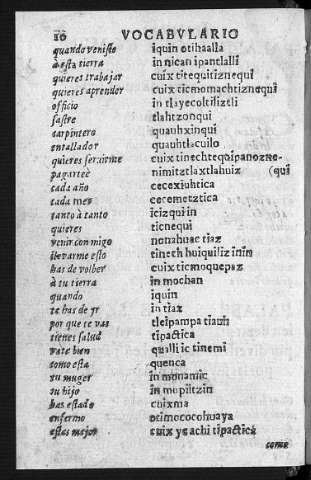 10 VOCABVLARIO
quando veniste iquin otihaalla
à esta tierra in nican ipantlalli
quieres trabajar cuix titequitiznequi
quieres aprender cuix ticmomachtiznequi
officio in tlayecoltiliztli
sastre tlahtzonqui
carpintero quauhxinqui
entallador quauhtlacuilo
quieres seruirme cuix tinechtequipanozne-
pagartee nimitztlaxtlahuiz (qui
cada año cecexiuhtica
cada mes cecemetztica
tanto à tanto icizqui in
quieres ticnequi
venir con migo nonahuac tiaz
lleuarme esto tinech huiquiliz inin
has de volber cuix ticmoquepaz
à tu tierra in mochan
quando iquin
te has de yr in tiaz
por que te vas tleipampa tiauh
tienes salud tipactica
vate bien qualli ic tinemi
como esta quenca
tu muger in monamic
tu hijo in mopiltzin
has estado cuixma
enfermo otimococohuaya
estas mejor cuix ye achi tipactica
comer